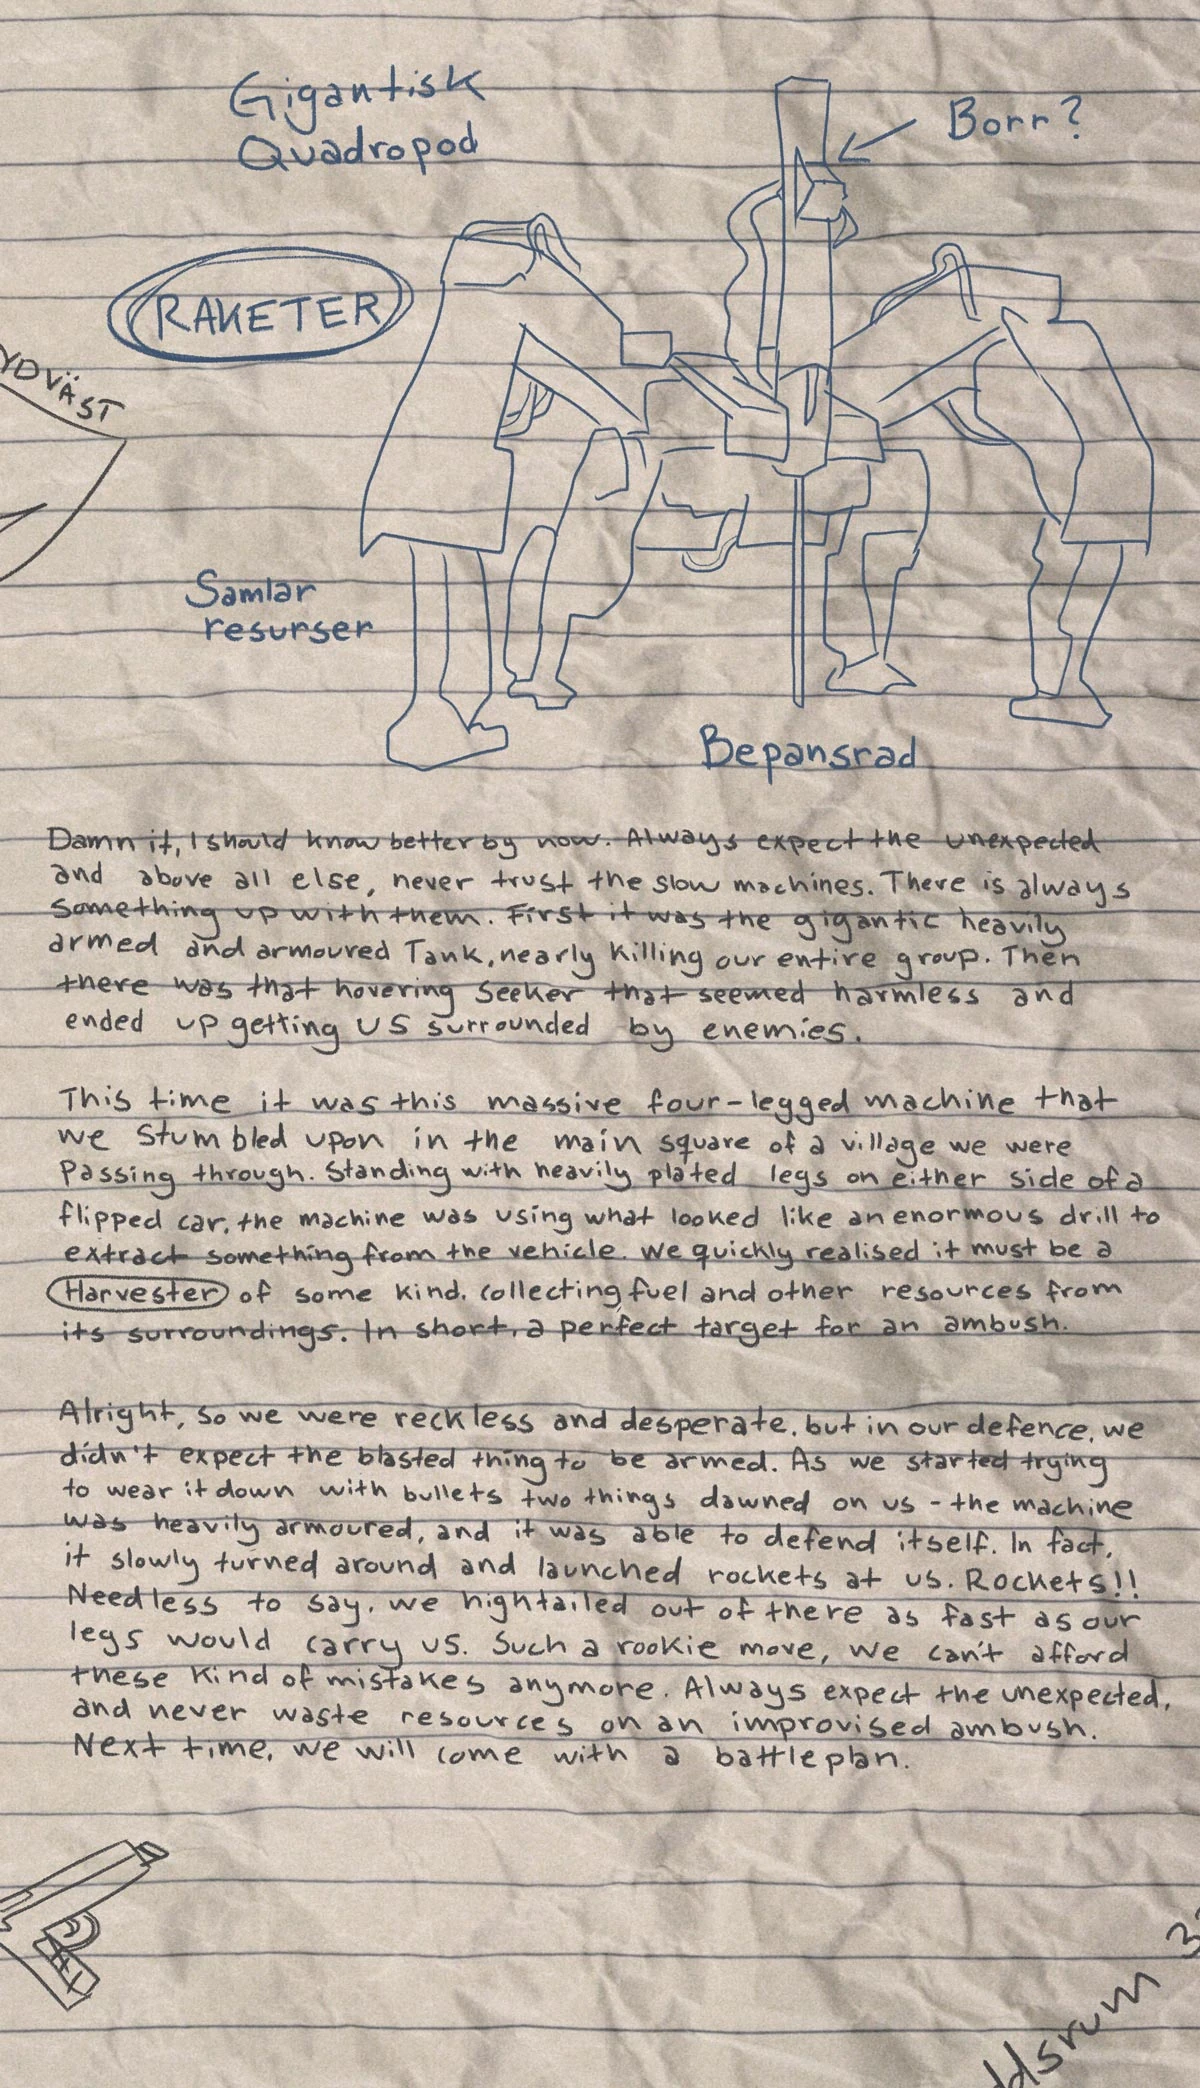 Gigantisk
Quadropod
Borr?
RAKETER
YDVÄST
Samlar
resurser
Bepansrad
Damn it, I should know better by now. Always expect the unexpected
and above all else, never trust the slow machines. There is always
something up with them. First it was the gigantic heavily
armed and armoured Tank, nearly killing our entire group. Then
there was that hovering Seeker that seemed harmless and
ended up getting us surrounded by enemies.
This time it was this massive four-legged machine that
we stumbled upon in the main square of a village we were
passing through. Standing with heavily plated legs on either side of a
flipped car, the machine was using what looked like an enormous drill to
extract something from the vehicle. We quickly realised it must be a
Harvester of some kind, collecting fuel and other resources from
its surroundings. In short, a perfect target for an ambush.
Alright, so we were reckless and desperate, but in our defence, we
didn't expect the blasted thing to be armed. As we started trying
to wear it down with bullets two things dawned on us - the machine
was heavily armoured, and it was able to defend itself. In fact,
it slowly turned around and launched rockets at us. Rockets!!
Needless to say, we hightailed out of there as fast as our
legs would carry us. Such a rookie move, we can't afford
these kind of mistakes anymore. Always expect the unexpected,
and never waste resources on an improvised ambush.
Next time, we will come with a battleplan.
ddsrum 3